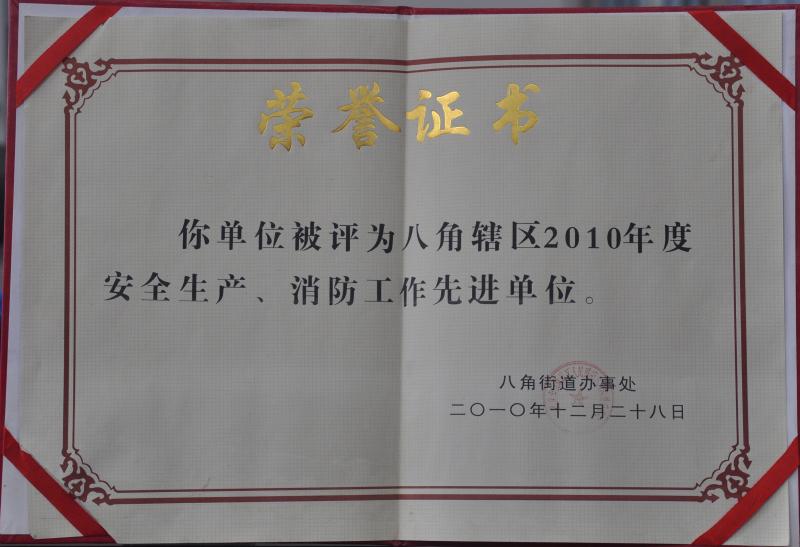 荣誉证书
你单位被评为八角辖区2010年度
安全生产、消防工作先进单位。
八角街道办事处
二〇一〇年十二月二十八日